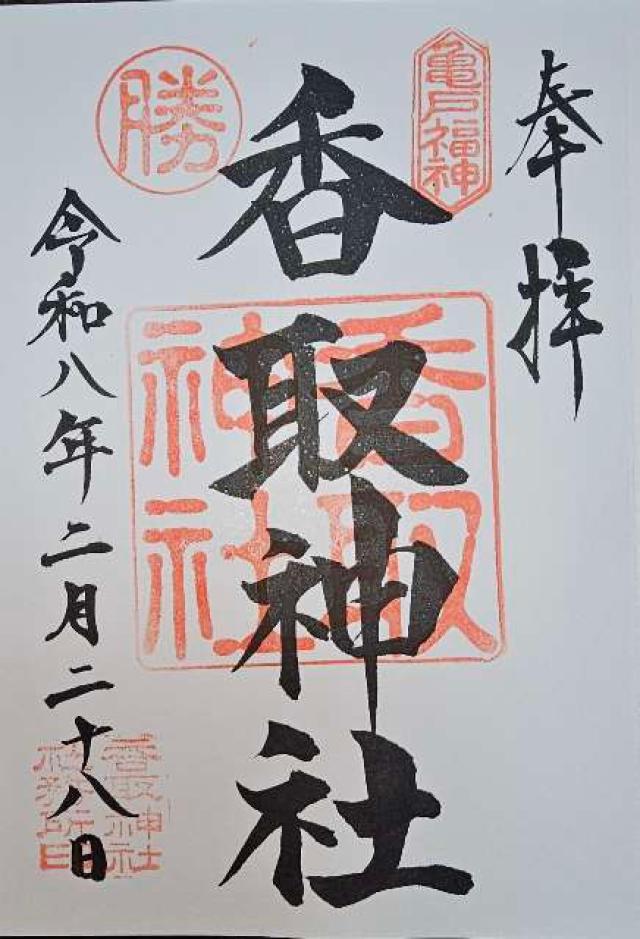 奉拝
亀戸福神
香取神社
香取神社
勝
令和八年二月二十八日
香取神社
社務所印